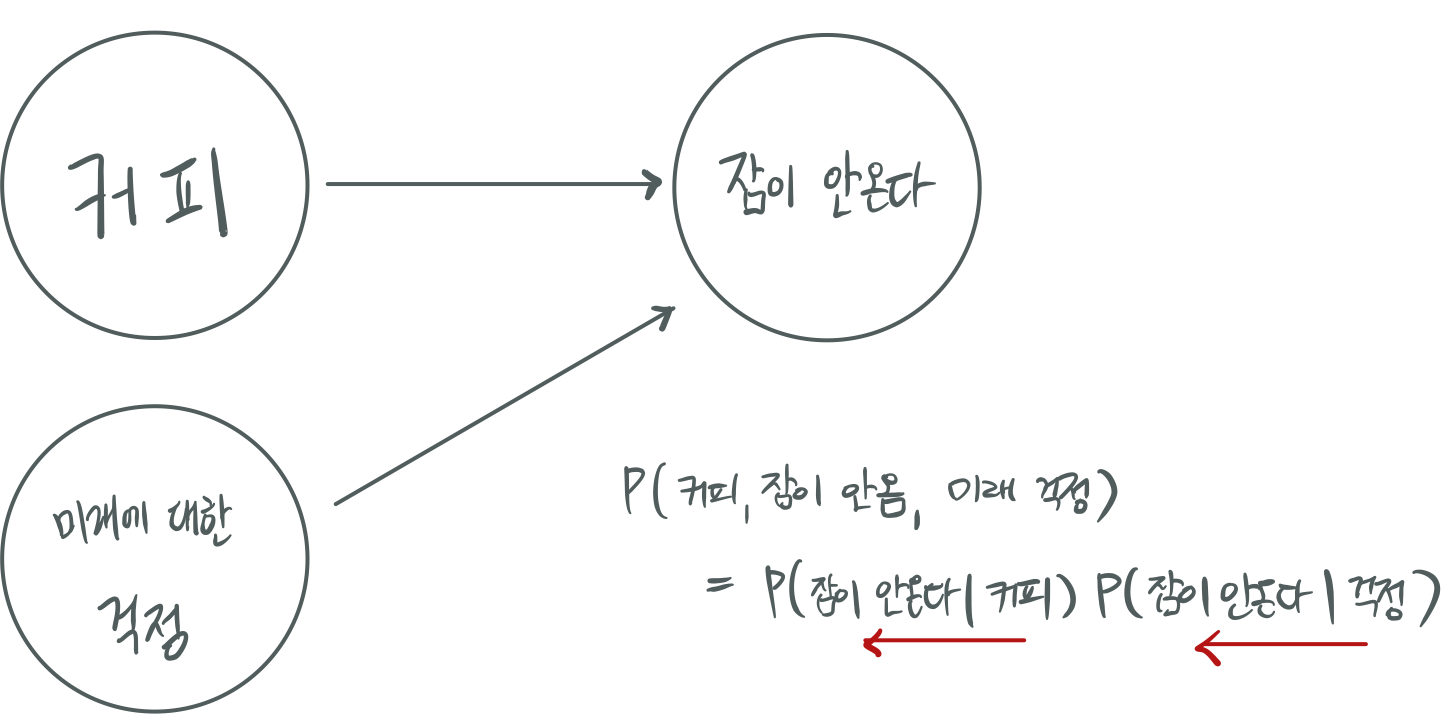 커피
잠이 안온다
미래에 대한
걱정
P(커피, 잠이 안옴, 미래 걱정)
= P(잠이 안온다|커피) P(잠이 안온다|걱정)